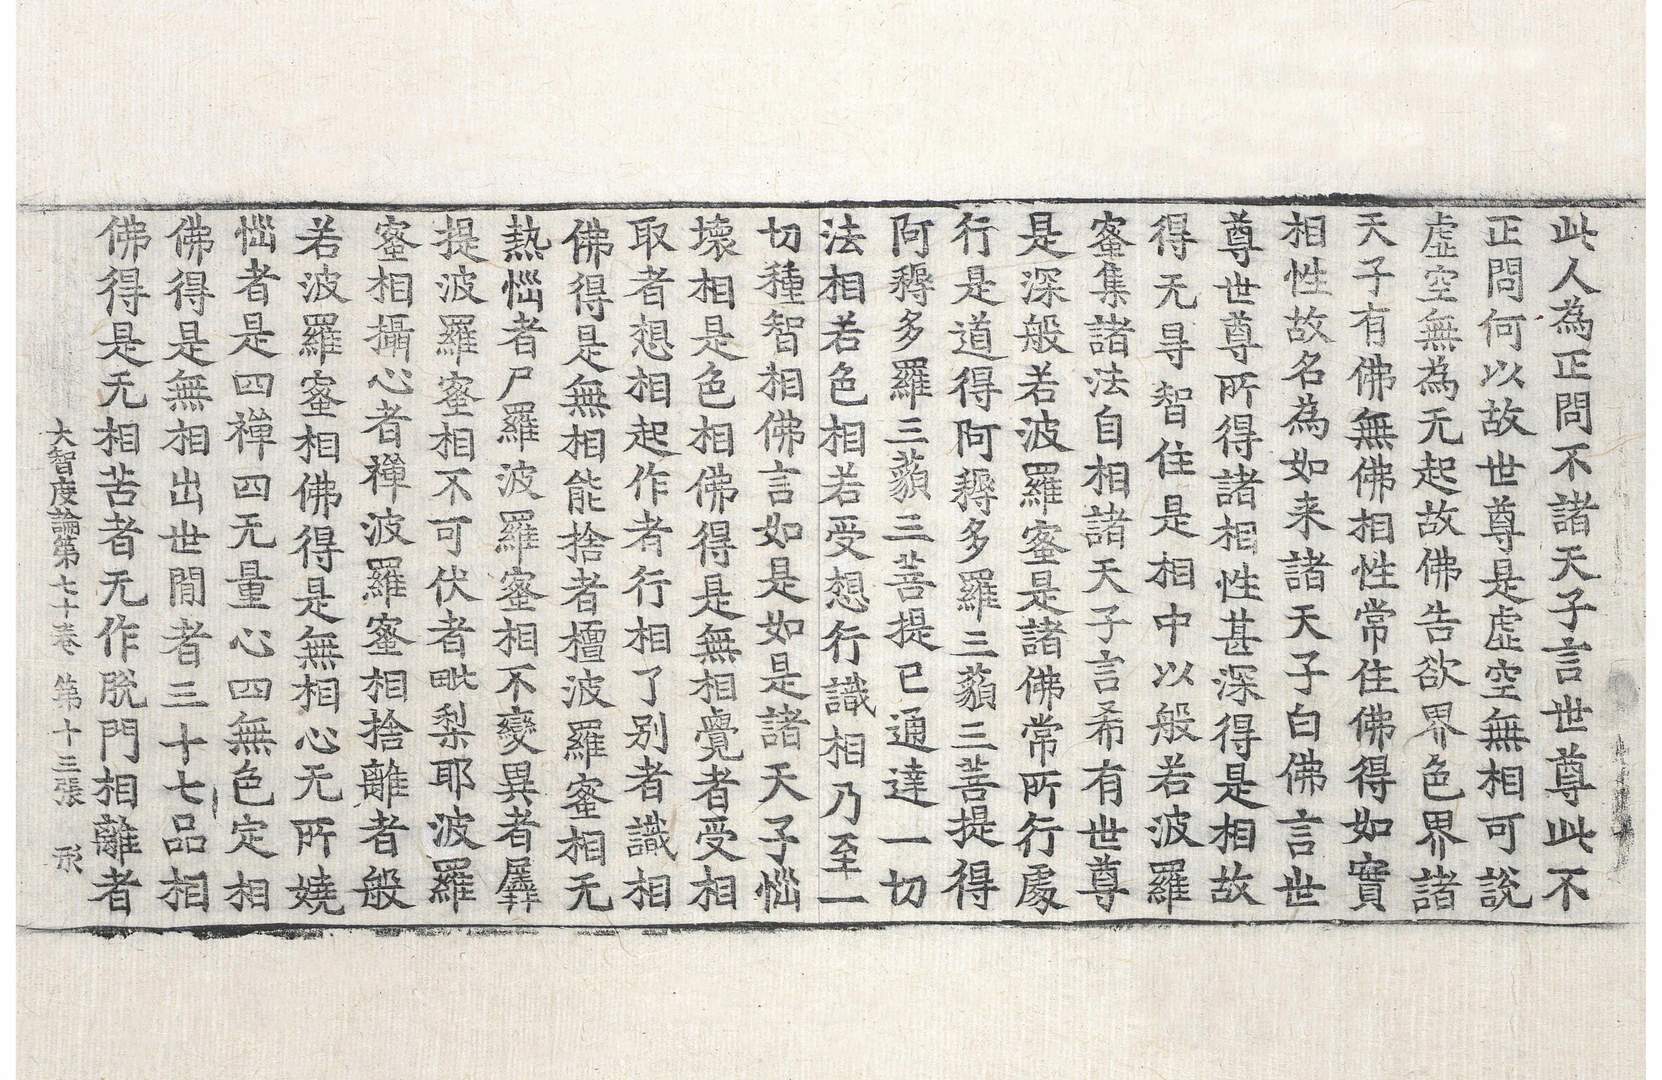 此人為正問不諸天子言世尊此不
正問何以故世尊是虛空無相可說
虛空無為无起故佛告欲界色界諸
天子有佛無佛相性常住佛得如實
相性故名為如来諸天子白佛言世
尊世尊所得諸相性甚深得是相故
得无㝵智住是相中以般若波羅
蜜集諸法自相諸天子言希有世尊
是深般若波羅蜜是諸佛常所行處
行是道得阿耨多羅三藐三菩提得
阿耨多羅三藐三菩提已通達一切
法相若色相若受想行識相乃至一
切種智相佛言如是如是諸天子惱
壞相是色相佛得是無相覺者受相
取者想相起作者行相了別者識相
佛得是無相能捨者檀波羅蜜相无
熱惱者尸羅波羅蜜相不變異者羼
提波羅蜜相不可伏者毗梨耶波羅
蜜相攝心者禪波羅蜜相捨離者般
若波羅蜜相佛得是無相心无所嬈
惱者是四禪四无量心四無色定相
佛得是無相出世閒者三十七品相
佛得是无相苦者无作脫門相離者
大智度論第七十卷 第十三張 形